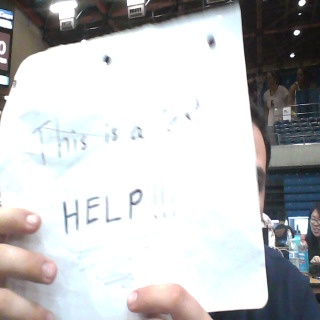 This is a
HELP!!!